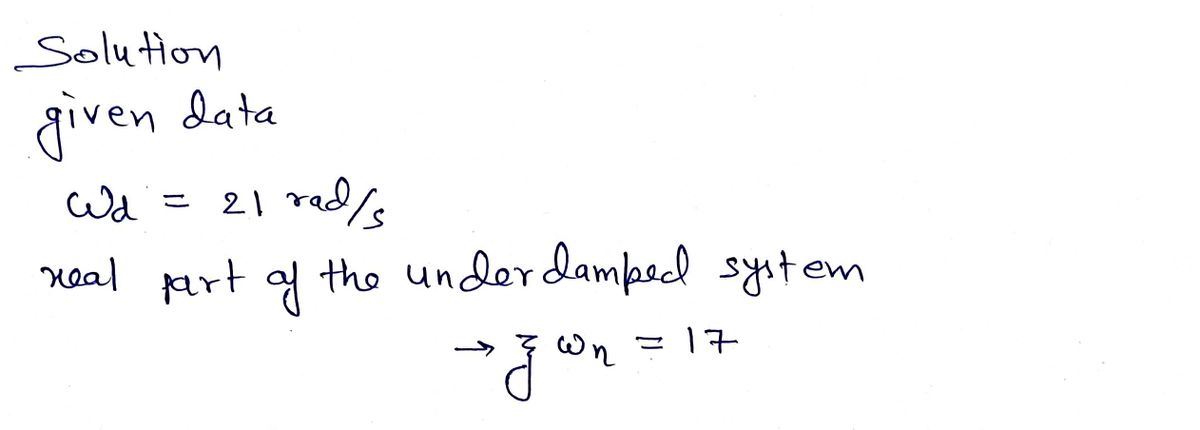 Solution
given data
ωd = 21 rad/s
real part of the underdamped system
→ ξ ωn = 17